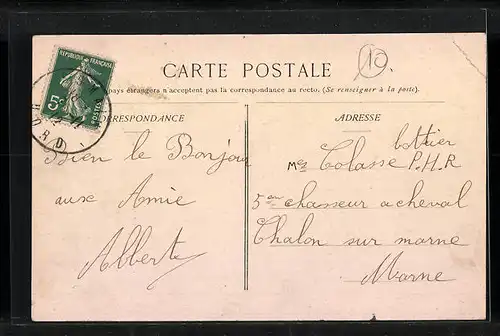 RÉPUBLIQUE FRANÇAISE
5c
POSTES
10
CARTE POSTALE
pays étrangers n'acceptent pas la correspondance au recto. (Se renseigner à la poste).
CORRESPONDANCE
Bien le Bonjour
aux Amie
Albert
ADRESSE
Colasse P.H.R
5 chasseur a cheval
Chalon sur marne
Marne